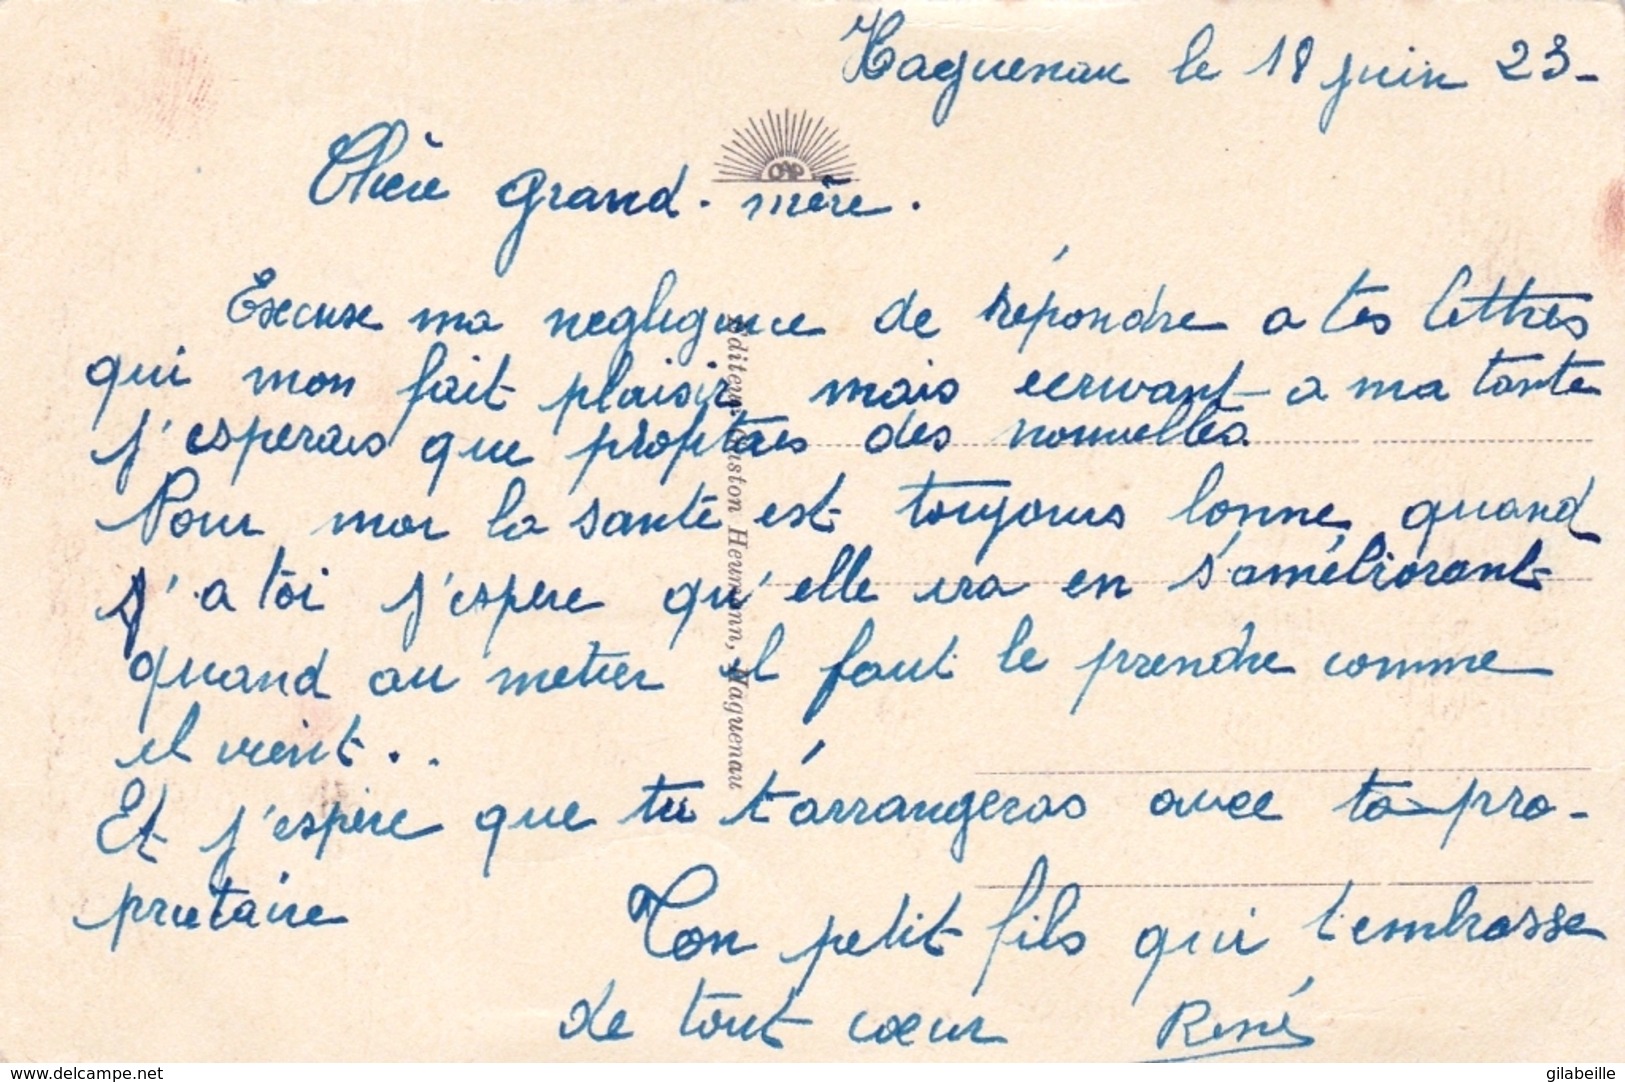 Haguenau le 18 juin 23-
CAP
Chère grand-mère.
Excuse ma negligence de répondre a tes lettres
qui mon fait plaisir mais ecrivant a ma tante
j'esperais que des nouvelles
Pour moi la santé est toujours bonne quand
a toi j'espere qu'elle ira en s'améliorant
quand au metier il faut le prendre comme
il vient..
Et j'espère que tu t'arrangeras avec ta pro-
prietaire
Ton petit fils qui t'embrasse
de tout cœur René
Editeur Gaston Heumann, Haguenau
delcampe.net
gilabeille